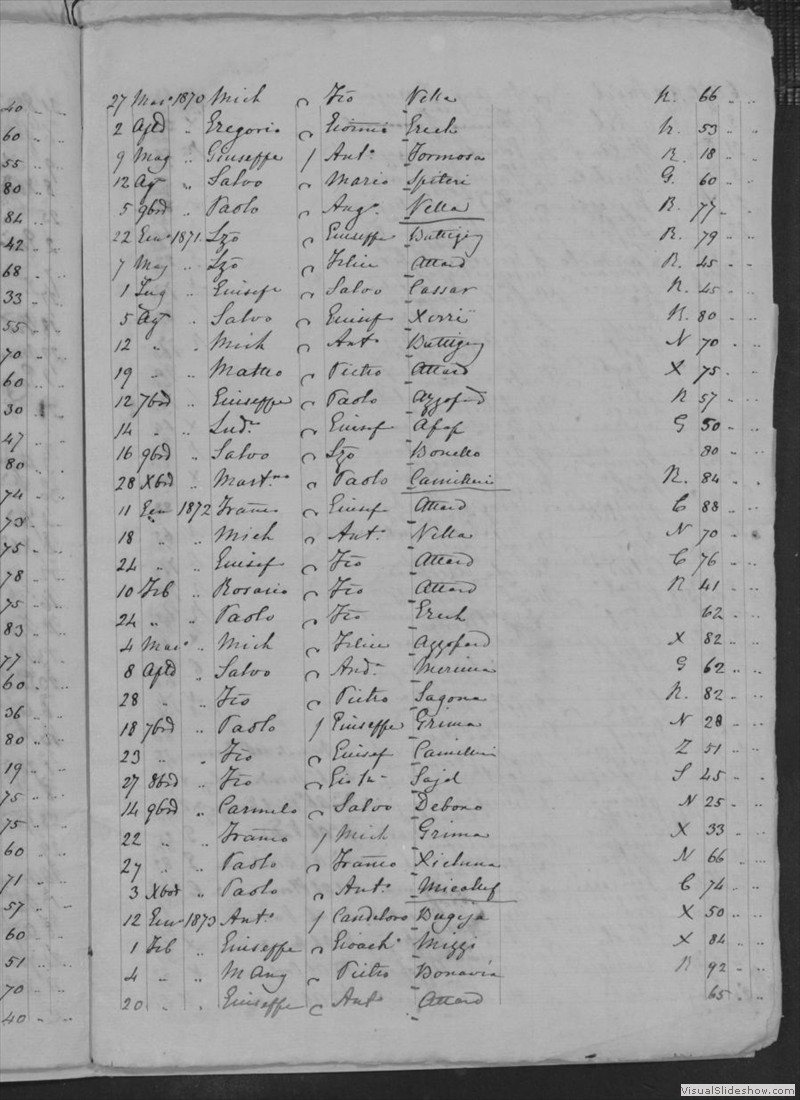 27 Mar. 1870 Mich Fco Vella R. 66 .. ..
2 Aple .. Gregorio Giovni Grech R. 53 .. ..
9 Mag .. Giuseppe / Ant. Formosa R. 18 .. ..
12 Ag. .. Salvo Mario Spiteri G. 60 .. ..
5 9bre .. Paolo Aug. Vella R. 77 .. ..
22 Enn. 1871. Lzo Giuseppe Buttigieg R. 79 .. ..
7 Mag .. Lzo Felice Attard R. 45 .. ..
1 Lug .. Giusepe Salvo Cassar R. 45 .. ..
5 Ag. .. Salvo Giusef Xerri R. 80 .. ..
12 .. .. Mich Ant. Buttigieg N 70 .. ..
19 .. .. Matteo Pietro Attard X 75 .. ..
12 7bre .. Giuseppe Paolo Azzopard R 57 .. ..
14 .. .. Lud. Giusef G 50 .. ..
16 9bre .. Salvo Lzo Bonello 80 .. ..
28 Xbre .. Paolo Camilleri R. 84 .. ..
11 Enn 1872 Franco Giusef Attard C 88 .. ..
18 .. .. Mich Ant. Vella N 70 .. ..
24 .. .. Giusef Fco Attard C 76 .. ..
10 Feb .. Rosario Fco Attard R 41 .. ..
24 .. .. Paolo Fco Grech 62 .. ..
4 Mar. .. Mich Felice Azzopard X 82 .. ..
8 Aple .. Salvo And. G 62 .. ..
28 .. .. Fco Pietro Sagona R. 82 .. ..
18 7bre .. Paolo / Giuseppe Grima N 28 .. ..
23 .. .. Fco Giusef Camilleri Z 51 .. ..
27 8bre .. Fco S 45 .. ..
14 9bre .. Carmelo Salvo Debono N 25 .. ..
22 .. .. Franco / Mich Grima X 33 .. ..
27 .. .. Paolo Franco Xicluna N 66 .. ..
3 Xbre .. Paolo Ant. Micallef C 74 .. ..
12 Enn. 1873 Ant. / Candeloro Bugeja X 50 .. ..
1 Feb .. Giuseppe Gioach. Mizzi X 84 .. ..
4 .. .. M Ang Pietro Bonavia R 92 .. ..
20 .. .. Giuseppe Ant. Attard 65 .. ..
40 .. ..
60 .. ..
55 .. ..
80 .. ..
84 .. ..
42 .. ..
68 .. ..
33 .. ..
55 .. ..
70 .. ..
60 .. ..
30 .. ..
47 .. ..
80 .. ..
74 .. ..
73 .. ..
75 .. ..
78 .. ..
75 .. ..
83 .. ..
77 .. ..
60 .. ..
36 .. ..
80 .. ..
19 .. ..
75 .. ..
75 .. ..
60 .. ..
71 .. ..
57 .. ..
60 .. ..
51 .. ..
70 .. ..
40 .. ..
VisualSlideshow.com